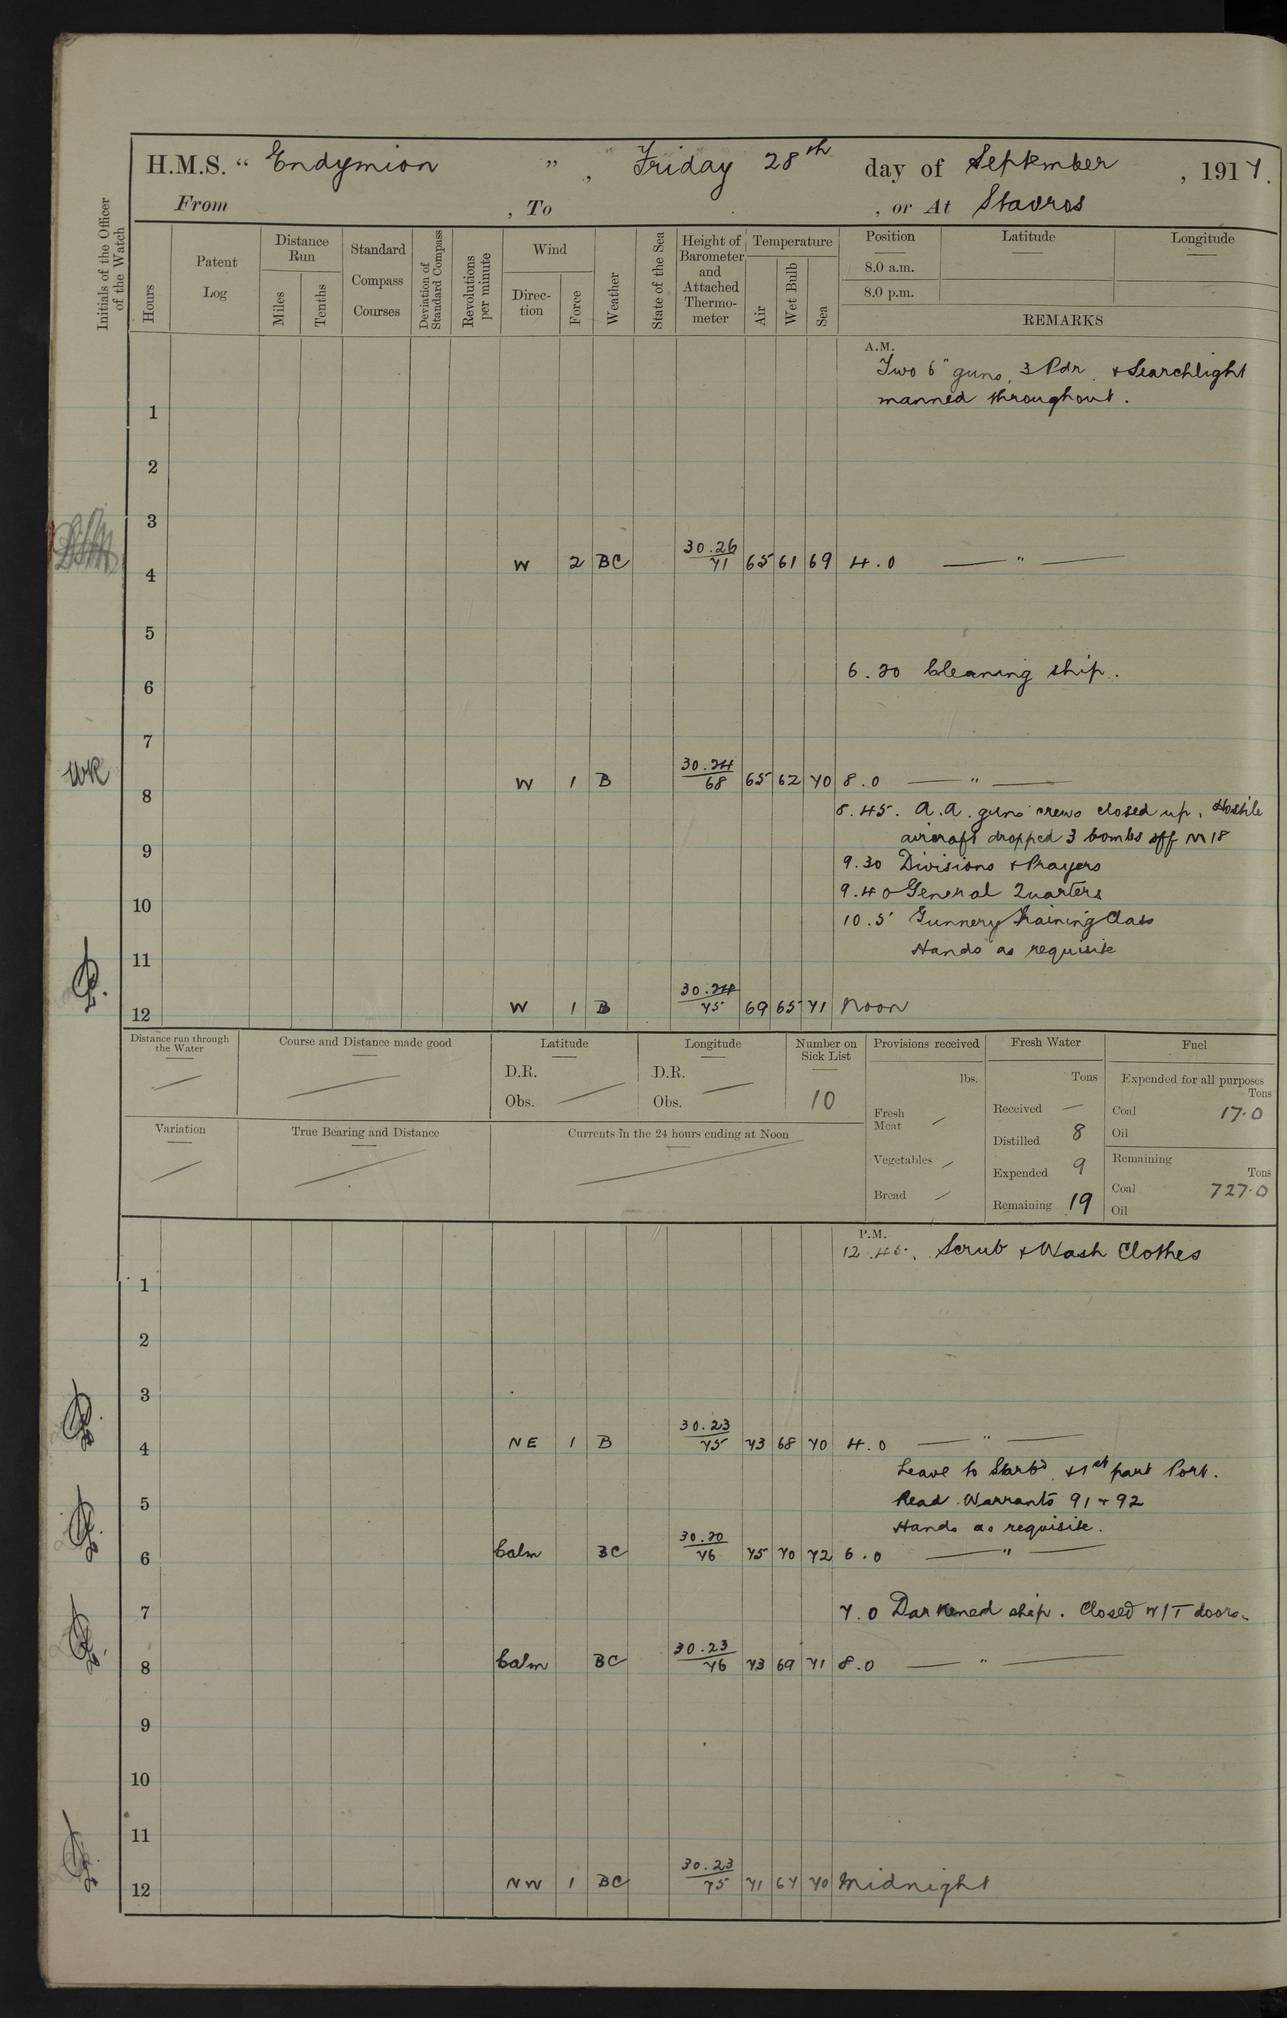 H.M.S. “ Endymion ” , Friday 28th day of September , 1917.
From , To , or At Stavros
Initials of the Officer of the Watch
Hours
Patent Log
Distance Run
Miles
Tenths
Standard Compass Courses
Deviation of Standard Compass
Revolutions per minute
Wind
Direc- tion
Force
Weather
State of the Sea
Height of Barometer and Attached Thermo- meter
Temperature
Air
Wet Bulb
Sea
Position
8.0 a.m.
8.0 p.m.
Latitude
Longitude
REMARKS
A.M.
Two 6" guns, 3 Pdr. & Searchlight
manned throughout.
1
2
3
4 W 2 BC 30.26/71 65 61 69 4.0 — " —
5
6.20 Cleaning ship.
6
7
8 W 1 B 30.24/68 65 62 70 8.0 — " —
8.45. A.A. guns crews closed up. Hostile
aircraft dropped 3 bombs off M18
9
9.30 Divisions & Prayers
9.40 General Quarters
10
10.5 Gunnery Training Class
Hands as requisite
11
12 W 1 B 30.24/75 69 65 71 Noon
Distance run through the Water
Course and Distance made good
Latitude
D.R.
Obs.
Longitude
D.R.
Obs.
Number on Sick List
10
Variation
True Bearing and Distance
Currents in the 24 hours ending at Noon
Provisions received
lbs.
Fresh Meat
Vegetables
Bread
Fresh Water
Tons
Received —
Distilled 8
Expended 9
Remaining 19
Fuel
Expended for all purposes
Tons
Coal 17.0
Oil
Remaining
Tons
Coal 727.0
Oil
P.M.
12.45. Scrub & Wash Clothes
1
2
3
4 NE 1 B 30.23/75 73 68 70 4.0 — " —
Leave to Starbd & 1st part Port.
5 Read Warrants 91 & 92
Hands as requisite.
6 Calm BC 30.20/76 75 70 72 6.0 — " —
7 7.0 Darkened ship. Closed W/T doors.
8 Calm BC 30.23/76 73 69 71 8.0 — " —
9
10
11
12 NW 1 BC 30.23/75 71 67 70 Midnight